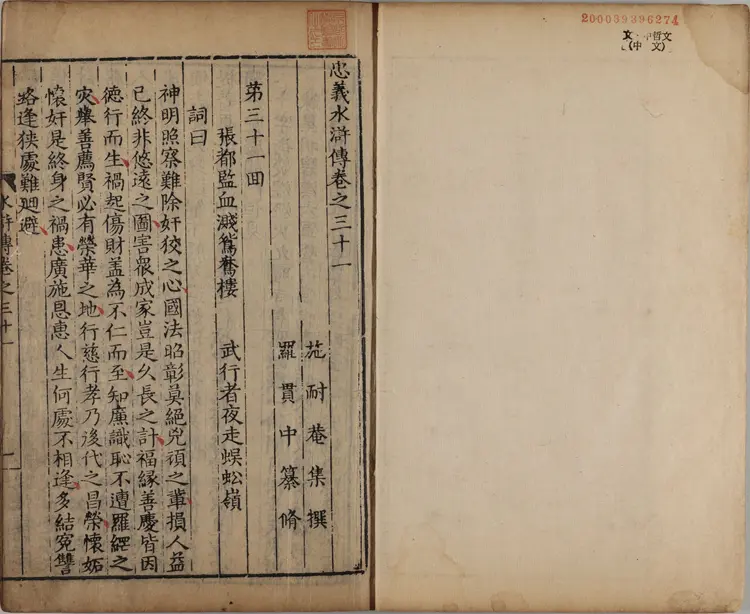 200039396274
文・中哲文
(中 文)
忠義水滸傳卷之三十一
施耐菴集撰
羅貫中纂脩
第三十一回
張都監血濺鴛鴦樓 武行者夜走蜈蚣嶺
詞曰
神明照察難除奸狡之心國法昭彰莫絕兇頑之輩損人益
己終非悠遠之圖害衆成家豈是久長之計福緣善慶皆因
德行而生禍起傷財盖為不仁而至知廉識恥不遭羅網之
灾舉善薦賢必有榮華之地行慈行孝乃後代之昌榮懷妬
懷奸是終身之禍患廣施恩惠人生何處不相逢多結寃讐
路逢狹處難迴避
水滸傳卷之三十一
一